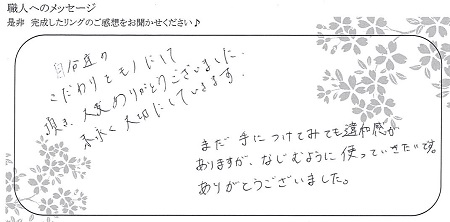 職人へのメッセージ
是非 完成したリングのご感想をお聞かせください♪
自分達の
こだわりをモノにして
頂き、大変ありがとうございました。
末永く大切にしていきます。
まだ手につけてみても違和感が
ありますが、なじむように使っていきたいです。
ありがとうございました。